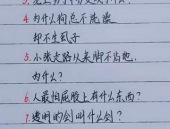 4.为什么狗总不洗澡
却不生虱子
5.小张走路从来脚不沾地
为什么?
6.人最怕屁股上有什么东西?
7.透明的剑叫什么剑?